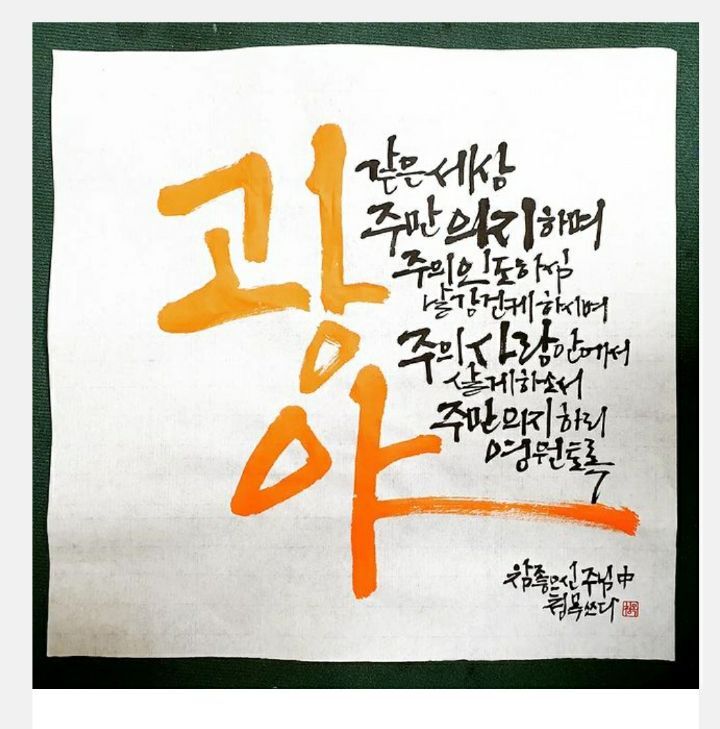 광야
같은 세상
주만 의지하며
주의 인도하심
날 강건케 하시며
주의 사랑 안에서
살게 하소서
주만 의지하리
영원토록
참 좋으신 주님 中
청목 쓰다